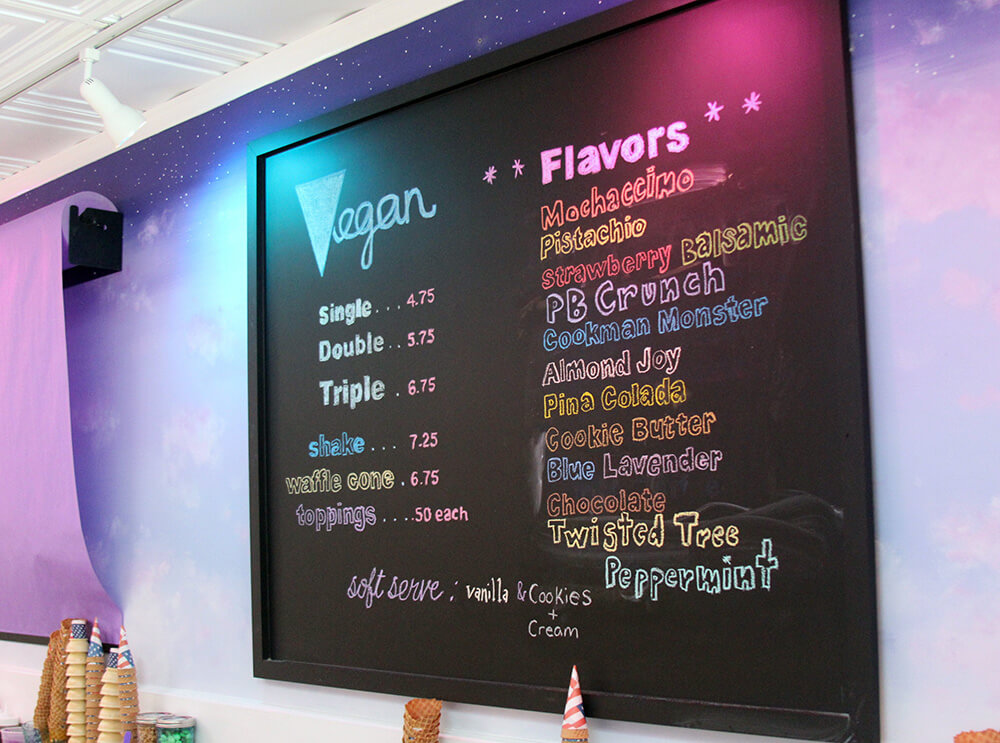 Vegan
Single... 4.75
Double.. 5.75
Triple . 6.75
shake... 7.25
waffle cone . 6.75
toppings ....50 each
** Flavors **
Mochaccino
Pistachio
Strawberry Balsamic
PB Crunch
Cookman Monster
Almond Joy
Pina Colada
Cookie Butter
Blue Lavender
Chocolate
Twisted Tree
Peppermint
soft serve : vanilla & Cookies
+
Cream